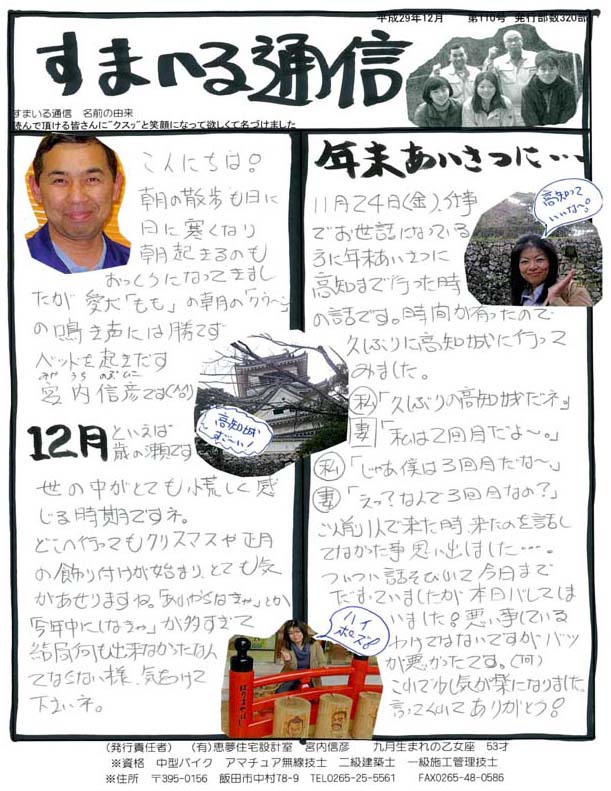 平成29年12月　第110号　発行部数320部
すまいる通信
すまいる通信　名前の由来
読んで頂ける皆さんに"クスッ"と笑顔になって欲しくて名づけました
こんにちは!
朝の散歩も日に
日に寒くなり
朝起きるのも
おっくうになってきまし
たが 愛犬「もも」の朝の「クゥ〜ン」
の鳴き声には勝てず
ベットを起きだす
みや うち のぶひこ
宮内信彦です(^o^)
12月といえば
歳の瀬です
世の中がとても慌しく感
じる時期ですネ。
どこへ行ってもクリスマスや正月
の飾り付けが始まり、とても気
があせりますね。「あれやらなきゃ」とか
「今年中にしなきゃ」が多すぎて
結局何も出来なかったなんて
ならない様、気を付けて
下さいネ。
高知城
すご〜い!
年末あいさつに・・・
11月24日(金)、仕事
でお世話になっている
方に年末あいさつに
高知まで行った時
の話です。時間が有ったので
久しぶりに高知城に行って
みました。
高知って
いいな〜。
私「久しぶりの高知城だネ。」
妻「私は2回目だよ〜。」
私「じゃあ僕は3回目だな〜」
妻「えっ?なんで3回目なの?」
以前1人で来た時、来たのを話し
てなかった事思い出しました・・・。
ついつい話そびれて今日まで
だまっていましたが本日バレてしま
いました!悪い事している
わけではないですがバツ
が悪かったです。(汗)
これで少し気が楽になりました。
言ってくれてありがとう!
ハイ
ポーズ!
はりまやばし
(発行責任者)　(有)恵夢住宅設計室　宮内信彦　九月生まれの乙女座　53才
※資格　中型バイク　アマチュア無線技士　二級建築士　一級施工管理技士
※住所　〒395-0156　飯田市中村78-9　TEL0265-25-5561　FAX0265-48-0586